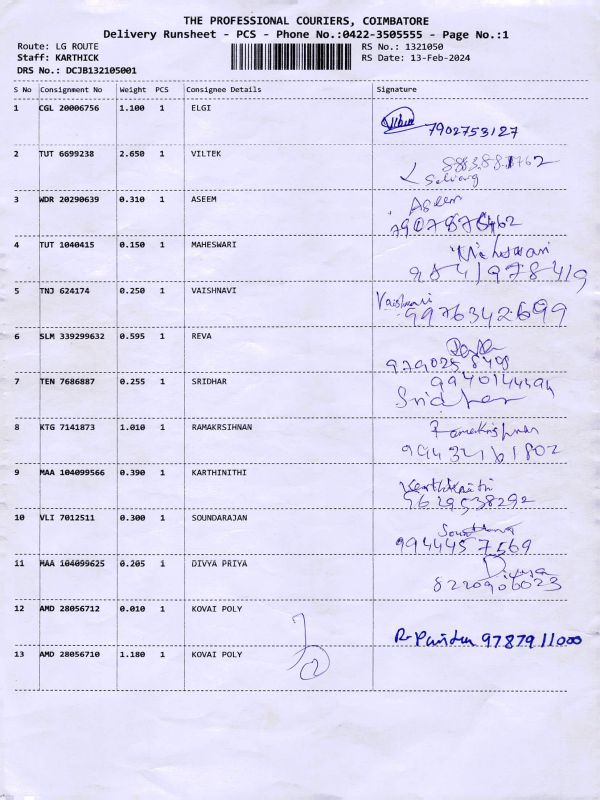 THE PROFESSIONAL COURIERS, COIMBATORE
Delivery Runsheet - PCS - Phone No.:0422-3505555 - Page No.:1
Route: LG ROUTE
RS No.: 1321050
Staff: KARTHICK
RS Date: 13-Feb-2024
DRS No.: DCJB132105001
S No Consignment No Weight PCS Consignee Details Signature
1 CGL 20006756 1.100 1 ELGI
7902753127
2 TUT 6699238 2.650 1 VILTEK
3 WDR 20290639 0.310 1 ASEEM Aseem
4 TUT 1040415 0.150 1 MAHESWARI
9841978419
5 TNJ 624174 0.250 1 VAISHNAVI Vaishnavi
9976342699
6 SLM 339299632 0.595 1 REVA
7 TEN 7686887 0.255 1 SRIDHAR
Sridhar
8 KTG 7141873 1.010 1 RAMAKRSIHNAN Ramakrishnan
9 MAA 104099566 0.390 1 KARTHINITHI
9629538292
10 VLI 7012511 0.300 1 SOUNDARAJAN
9944457569
11 MAA 104099625 0.205 1 DIVYA PRIYA Divya
8220906023
12 AMD 28056712 0.010 1 KOVAI POLY
9787911000
13 AMD 28056710 1.180 1 KOVAI POLY